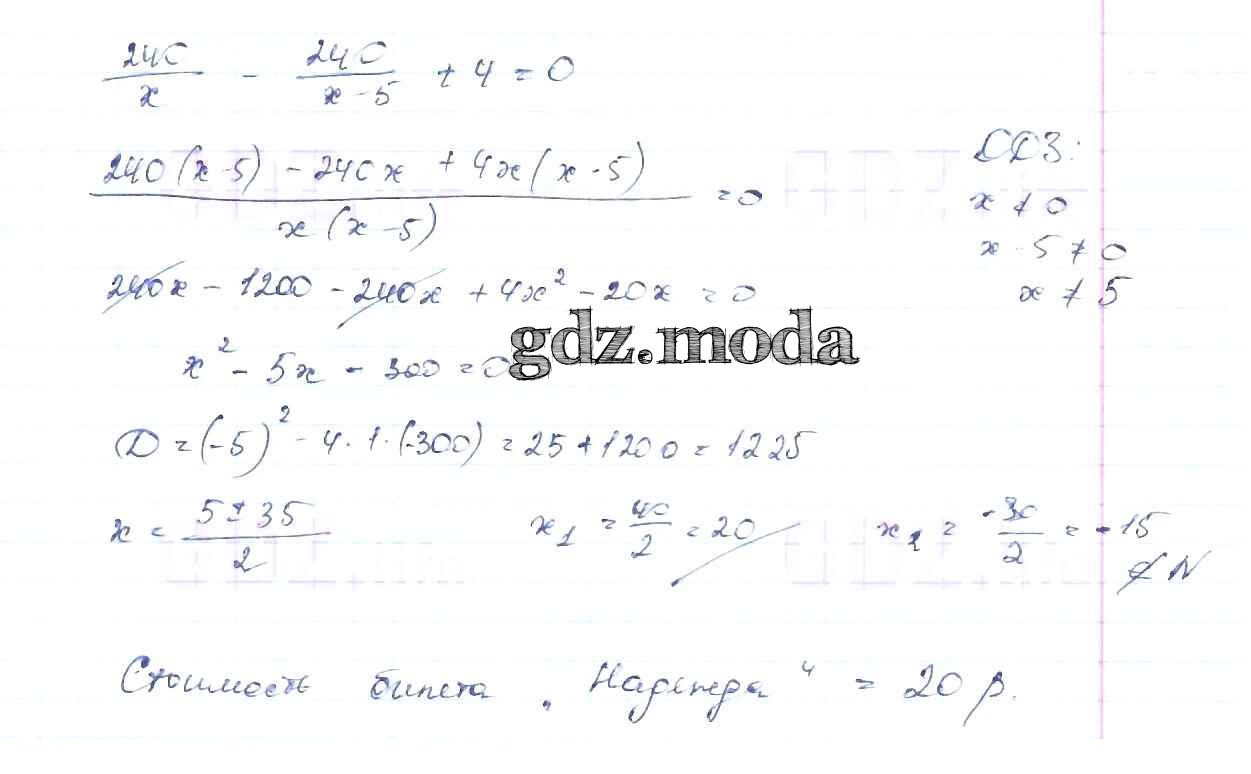 240/x - 240/(x-5) + 4 = 0
(240(x-5) - 240x + 4x(x-5))/(x(x-5)) = 0
ОДЗ:
x ≠ 0
x - 5 ≠ 0
x ≠ 5
240x - 1200 - 240x + 4x² - 20x = 0
gdz.moda
x² - 5x - 300 = 0
D = (-5)² - 4·1·(-300) = 25 + 1200 = 1225
x = (5 ± 35)/2 x₁ = 40/2 = 20 x₂ = -30/2 = -15
∉ N
Стоимость билета „Надежда“ = 20 р.